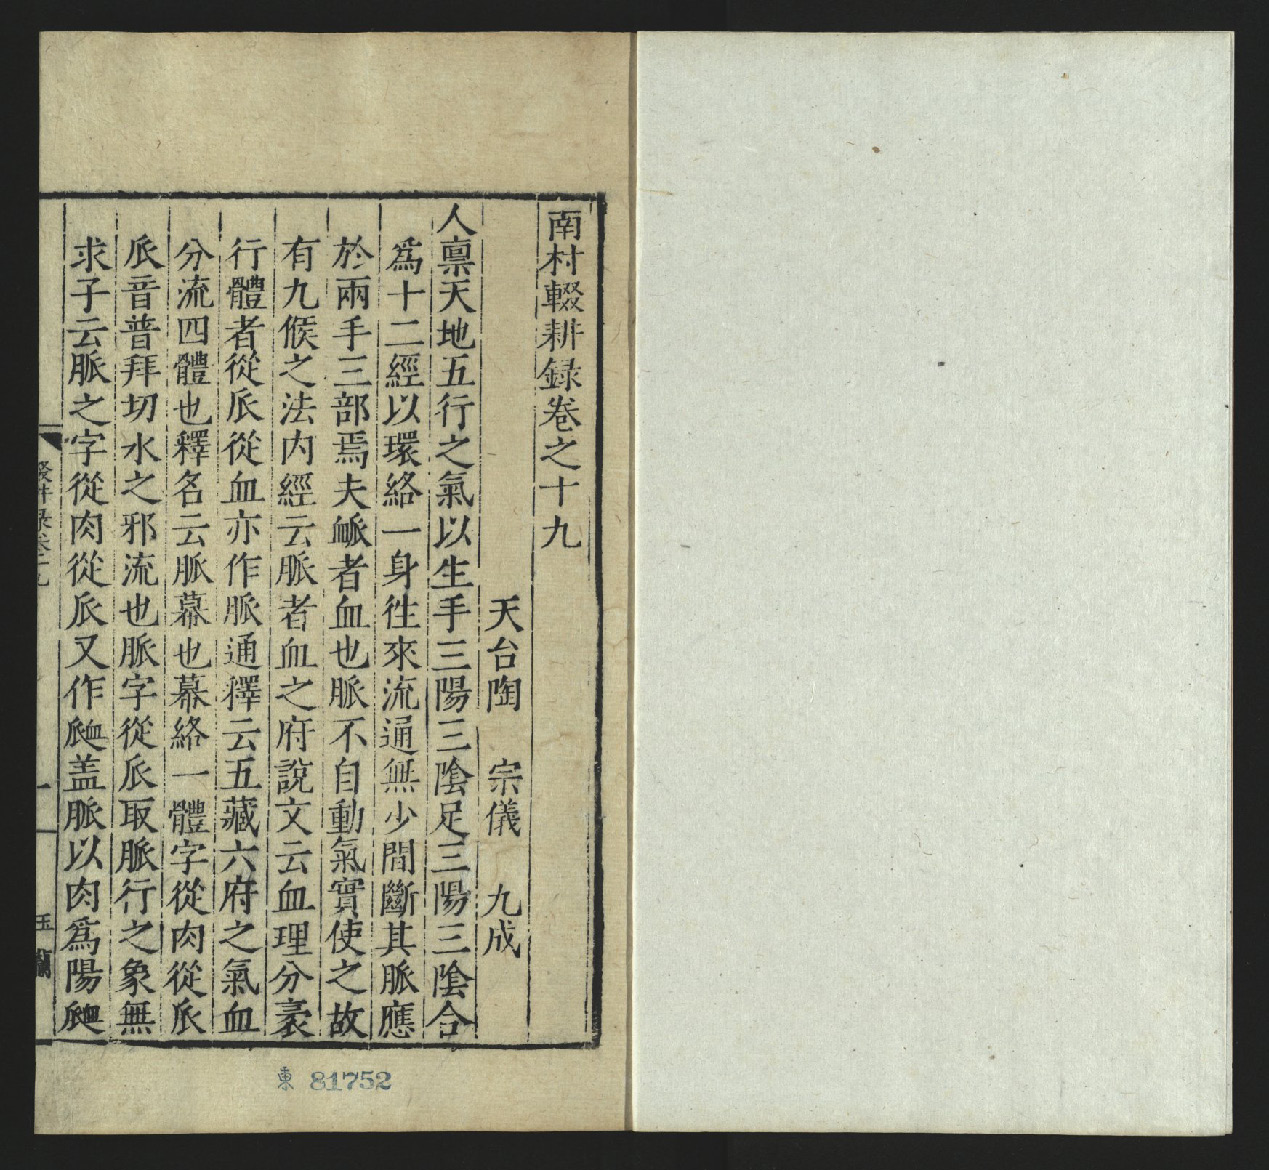 南村輟耕録卷之十九
天台陶　宗儀　九成
人禀天地五行之氣以生手三陽三陰足三陽三陰合
爲十二經以環絡一身徃來流通無少間斷其脈應
於兩手三部焉夫衇者血也脈不自動氣實使之故
有九候之法内經云脈者血之府說文云血理分袤
行體者從𠂢從血亦作脈通釋云五藏六府之氣血
分流四體也釋名云脈幕也幕絡一體字從肉從𠂢
𠂢音普拜切水之邪流也脈字從𠂢取脈行之象無
求子云脈之字從肉從𠂢又作𧖴盖脈以肉爲陽𧖴
東 81752